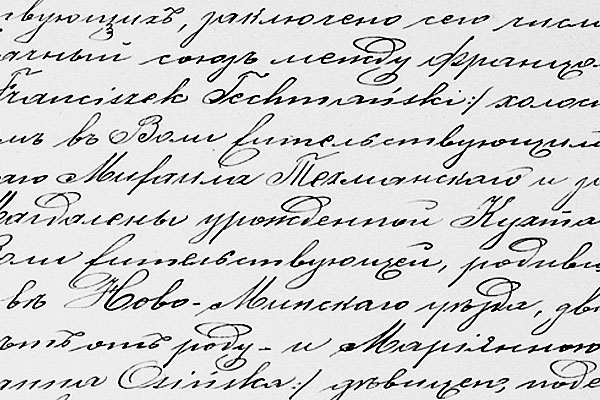 ствующихъ, заключено сего числа
ачный союзъ между Францо
Franciszek Techmański:/ холост
въ Воли жительствующимъ
аго Михаила Техманскаго и
Магдалены урожденной Кухта
Воли жительствующей, родивш
въ Ново-Минскаго уѣзда, дв
отъ роду - и Маріянною
anna Osińska:/ дѣвицею, под